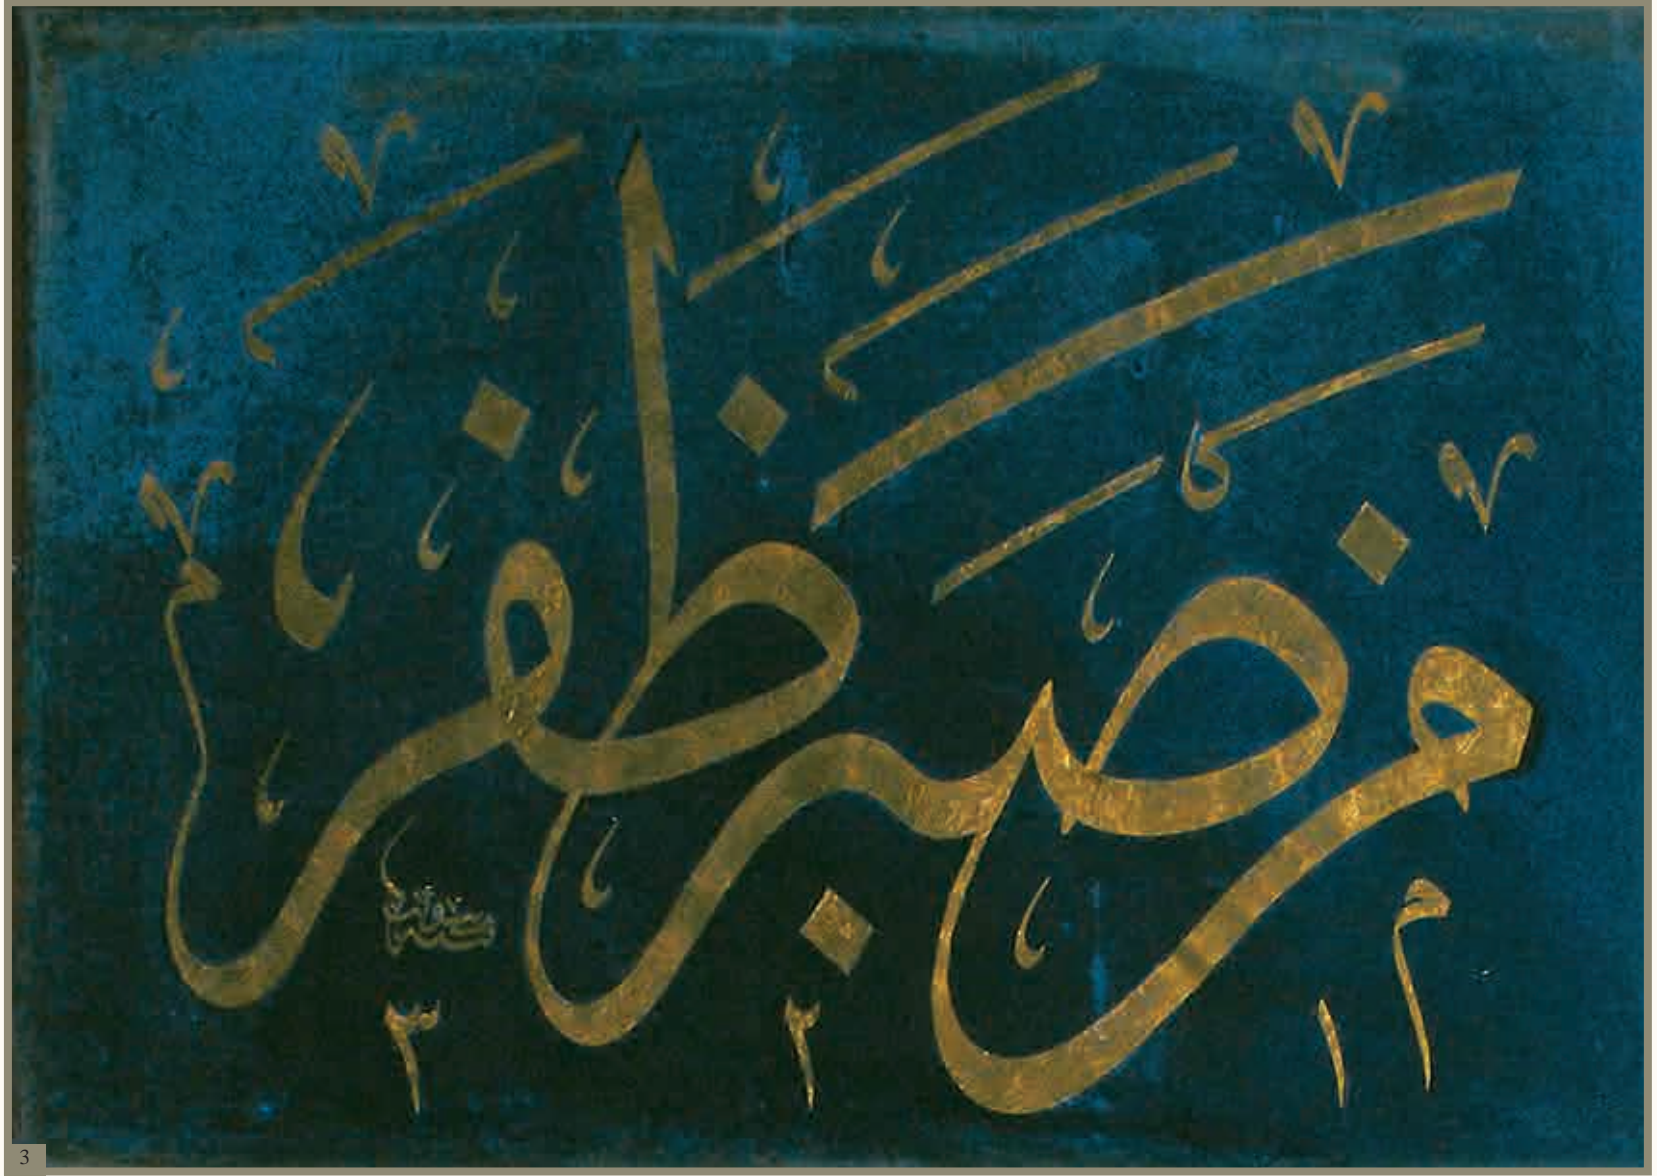 من صبر ظفر
م ١ ٢ ٣
3